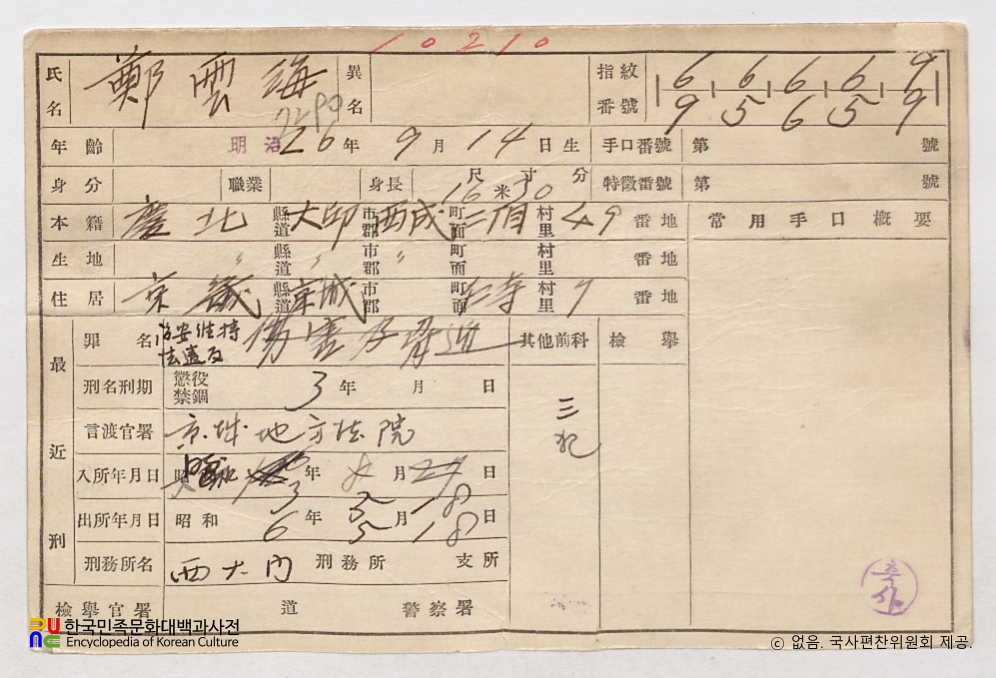 10210
氏名 鄭雲海 異名 指紋番號 6 6 6 6 9
9 5 6 5 9
年齡 明治26年9月14日生 手口番號 第 號
身分 職業 身長 尺 寸 分 特徵番號 第 號
16米30
本籍 慶北 縣道 大邱 市郡 西成 町面 二丁目 村里 49 番地 常用手口槪要
生地 〃 縣道 〃 市郡 〃 町面 村里 番地
住居 京畿 縣道 京城 市郡 町面 村里 9 番地
最近刑
罪名 治安維持法違反 傷害及脅迫 其他前科 檢擧
刑名刑期 懲役 禁錮 3年 月 日
三犯
言渡官署 京城地方法院
入所年月日 昭和 3年 5月 18日
出所年月日 昭和 6年 5月 18日
刑務所名 西大門 刑務所 支所
檢擧官署 道 警察署
한국민족문화대백과사전
Encyclopedia of Korean Culture
ⓒ 없음. 국사편찬위원회 제공.